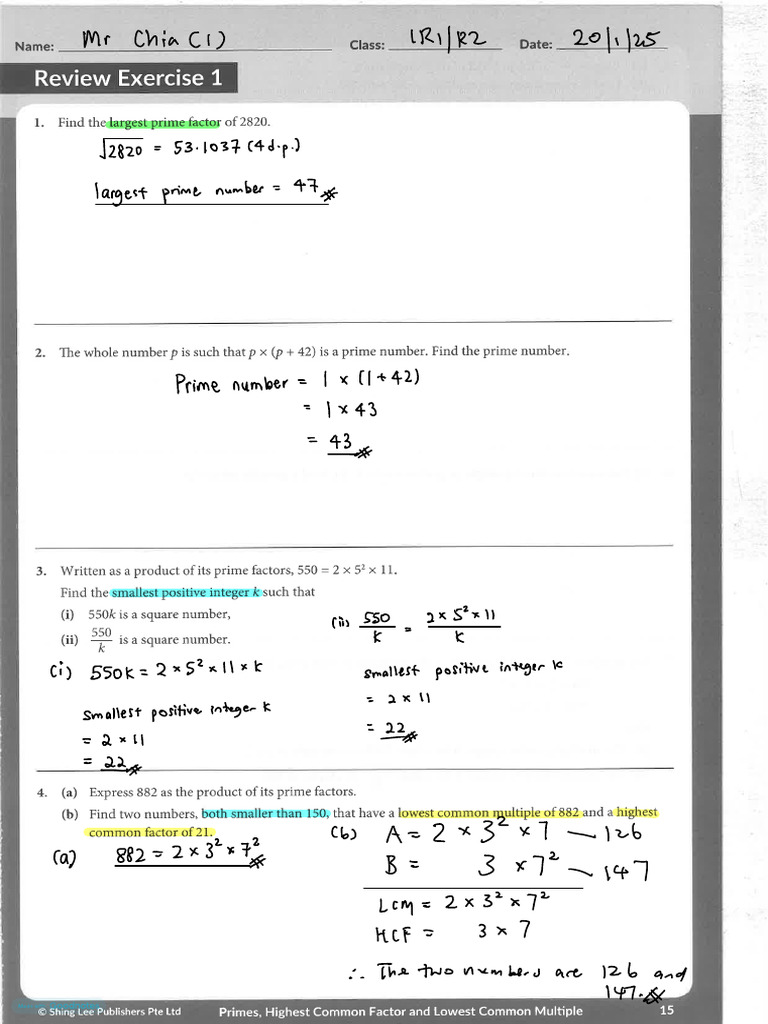 Name: Mr Chia (1) Class: 1R1/R2 Date: 20/1/25
Review Exercise 1
1. Find the largest prime factor of 2820.
√2820 = 53.1037 (4 d.p.)
largest prime number = 47
2. The whole number p is such that p × (p + 42) is a prime number. Find the prime number.
Prime number = 1 × (1 + 42)
= 1 × 43
= 43
3. Written as a product of its prime factors, 550 = 2 × 5² × 11.
Find the smallest positive integer k such that
(i) 550k is a square number,
(ii) 550/k is a square number.
(i) 550k = 2 × 5² × 11 × k
smallest positive integer k
= 2 × 11
= 22
(ii) 550/k = 2 × 5² × 11/k
smallest positive integer k
= 2 × 11
= 22
4. (a) Express 882 as the product of its prime factors.
(b) Find two numbers, both smaller than 150, that have a lowest common multiple of 882 and a highest
common factor of 21.
(a) 882 = 2 × 3² × 7²
(b) A = 2 × 3² × 7 — 126
B = 3 × 7² — 147
LCM = 2 × 3² × 7²
HCF = 3 × 7
∴ The two numbers are 126 and
147.
© Shing Lee Publishers Pte Ltd Primes, Highest Common Factor and Lowest Common Multiple 15